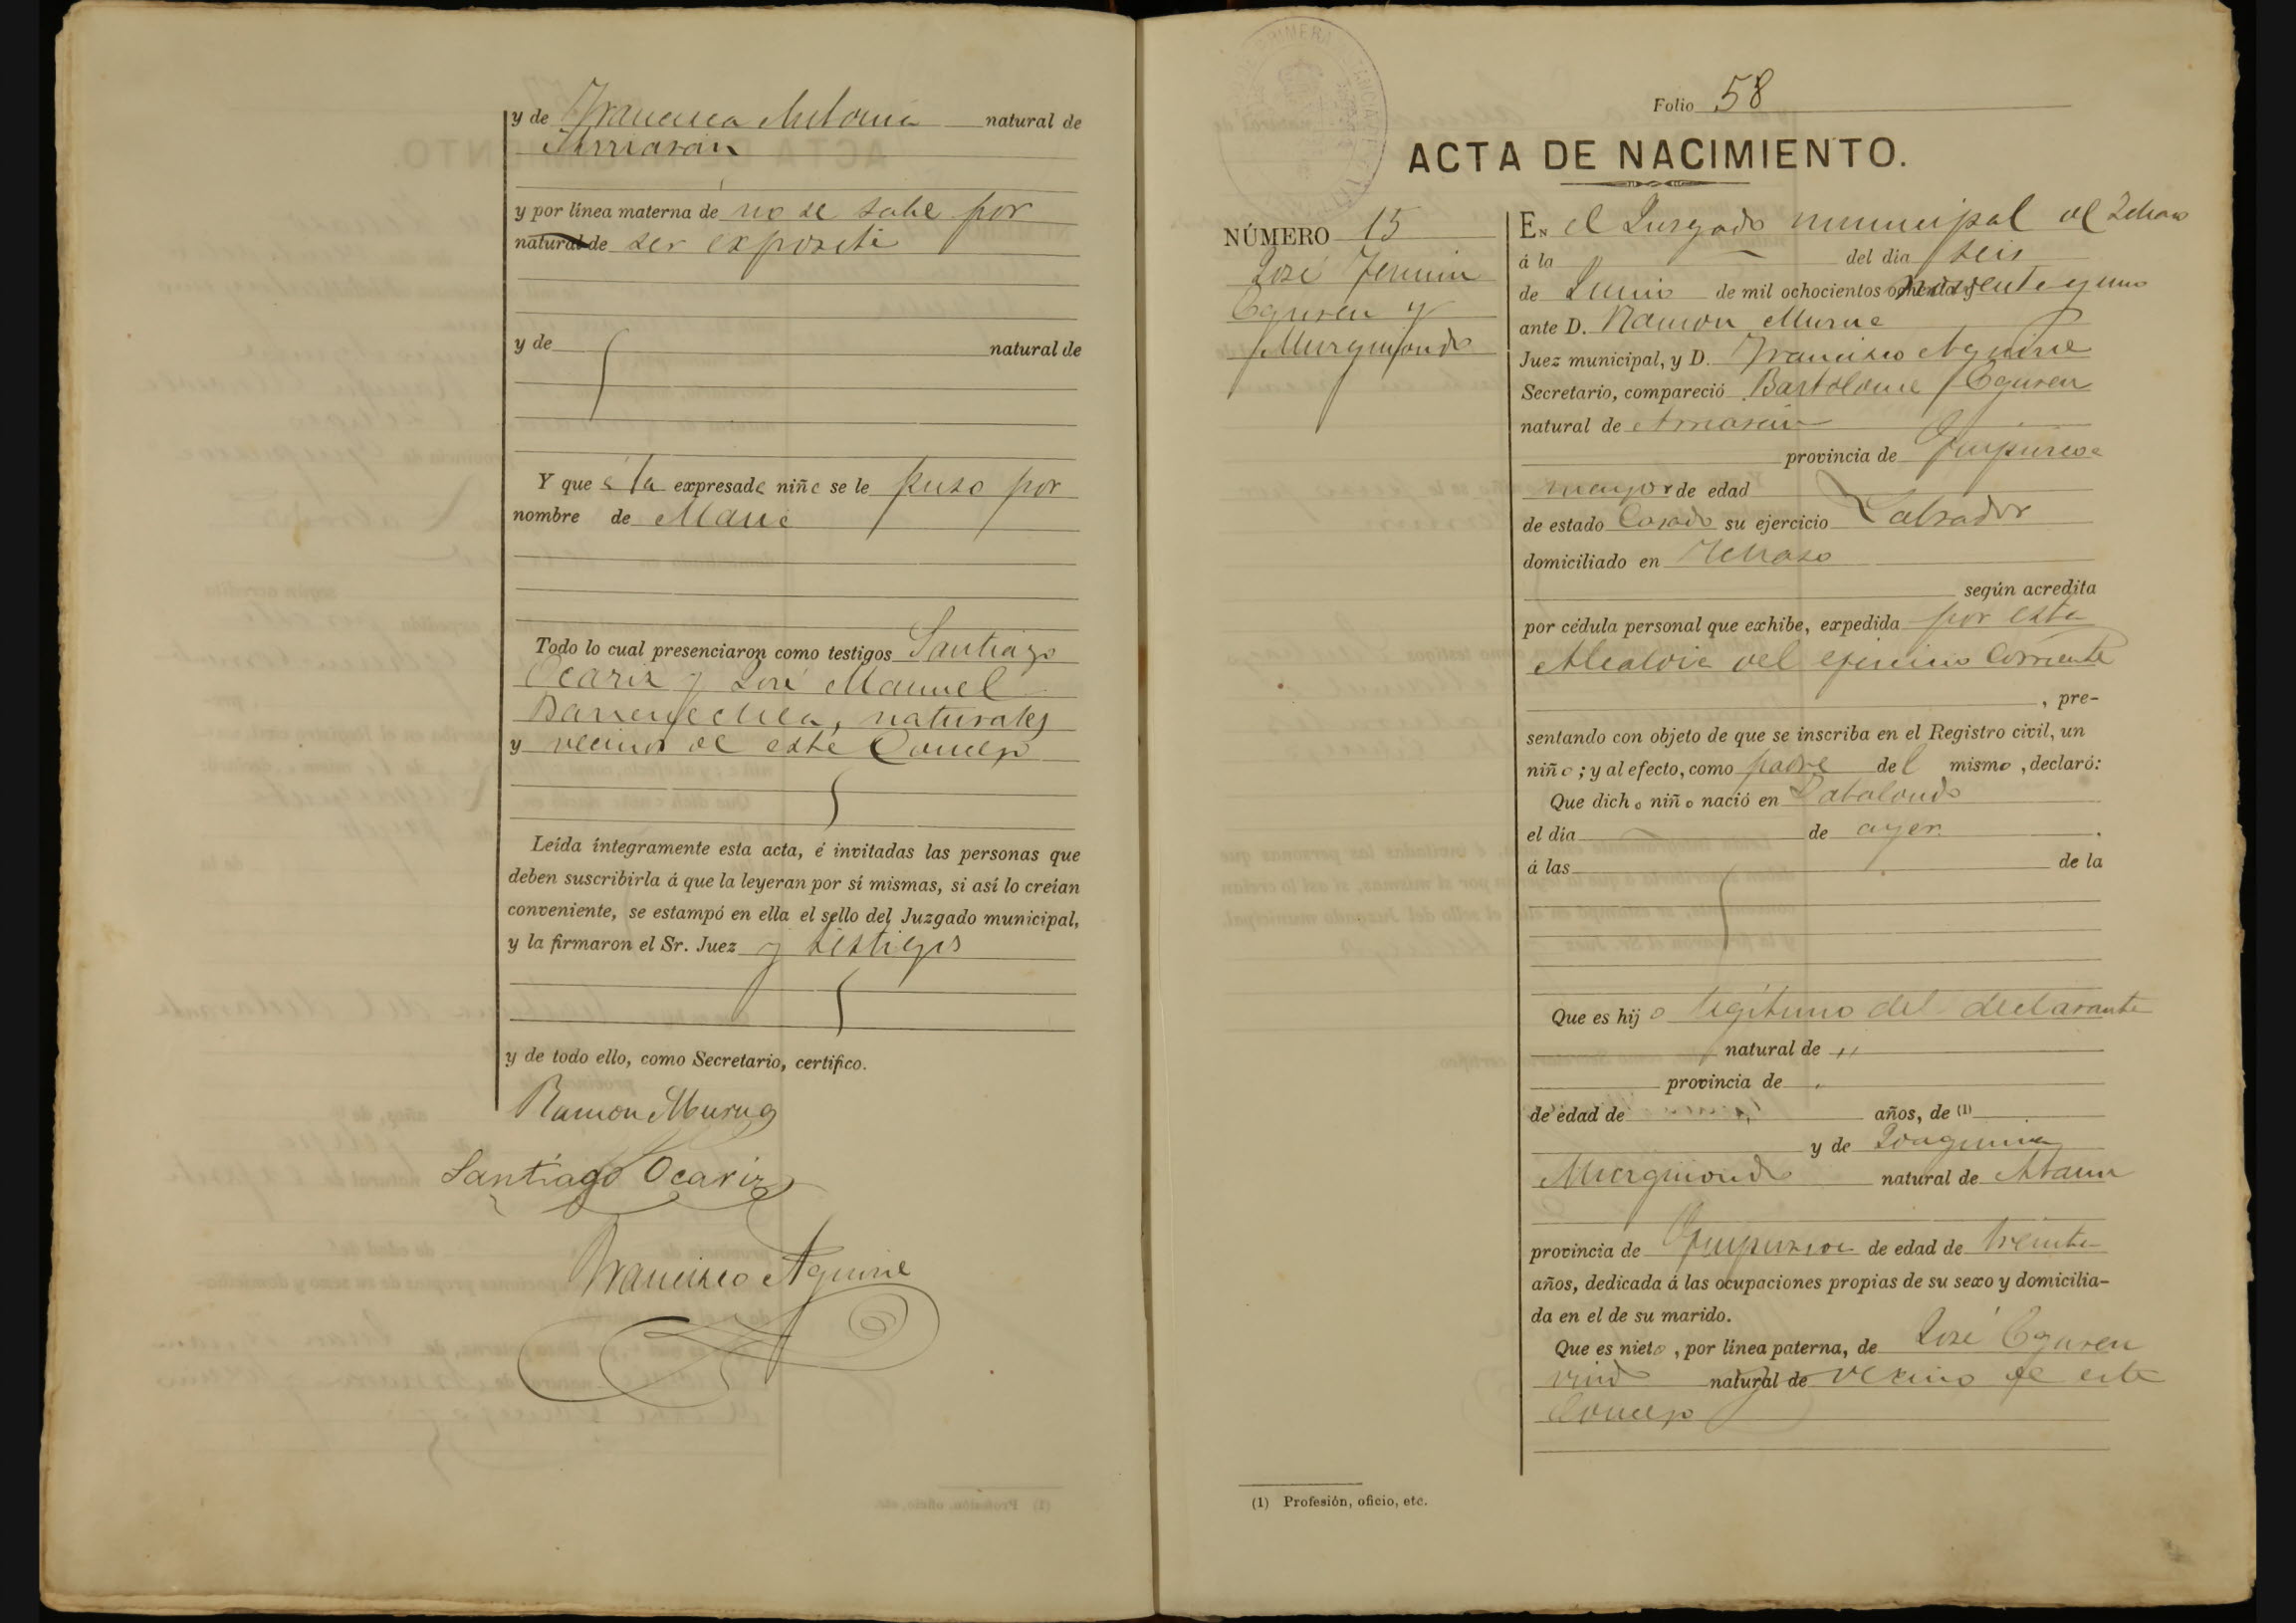 y de Francisca Antonia natural de
Iturriaran
y por línea materna de no se sabe por
natural de ser exposita
y de natural de
Y que á la expresada niña se le puso por
nombre de Maria
Todo lo cual presenciaron como testigos Santiago
Ocariz y José Manuel
Barrenechea, naturales
y vecinos de este Concejo
Leída íntegramente esta acta, é invitadas las personas que
deben suscribirla á que la leyeran por sí mismas, si así lo creían
conveniente, se estampó en ella el sello del Juzgado municipal,
y la firmaron el Sr. Juez y testigos
y de todo ello, como Secretario, certifico.
Ramon Murua
Santiago Ocariz
Francisco Aguirre
Folio 58
ACTA DE NACIMIENTO.
NÚMERO 15
José Fermin
Eguren y
Murguiondo
En el Juzgado municipal de Ichaso
á la del dia seis
de Junio de mil ochocientos noventa y uno
ante D. Ramon Murua
Juez municipal, y D. Francisco Aguirre
Secretario, compareció Bartolome Eguren
natural de
provincia de Guipuzcoa
mayor de edad
de estado Casado su ejercicio Labrador
domiciliado en Ichaso
según acredita
por cédula personal que exhibe, expedida por esta
Alcaldia del ejercicio corriente
, pre-
sentando con objeto de que se inscriba en el Registro civil, un
niño; y al efecto, como padre del mismo, declaró:
Que dicho niño nació en
el día de ayer.
á las de la
Que es hijo legítimo del declarante
natural de "
provincia de "
de edad de años, de (1)
y de Joaquina
Murguiondo natural de Ataun
provincia de Guipuzcoa de edad de treinta
años, dedicada á las ocupaciones propias de su sexo y domicilia-
da en el de su marido.
Que es nieto, por línea paterna, de José Eguren
viudo natural de vecino de este
Concejo
(1) Profesión, oficio, etc.